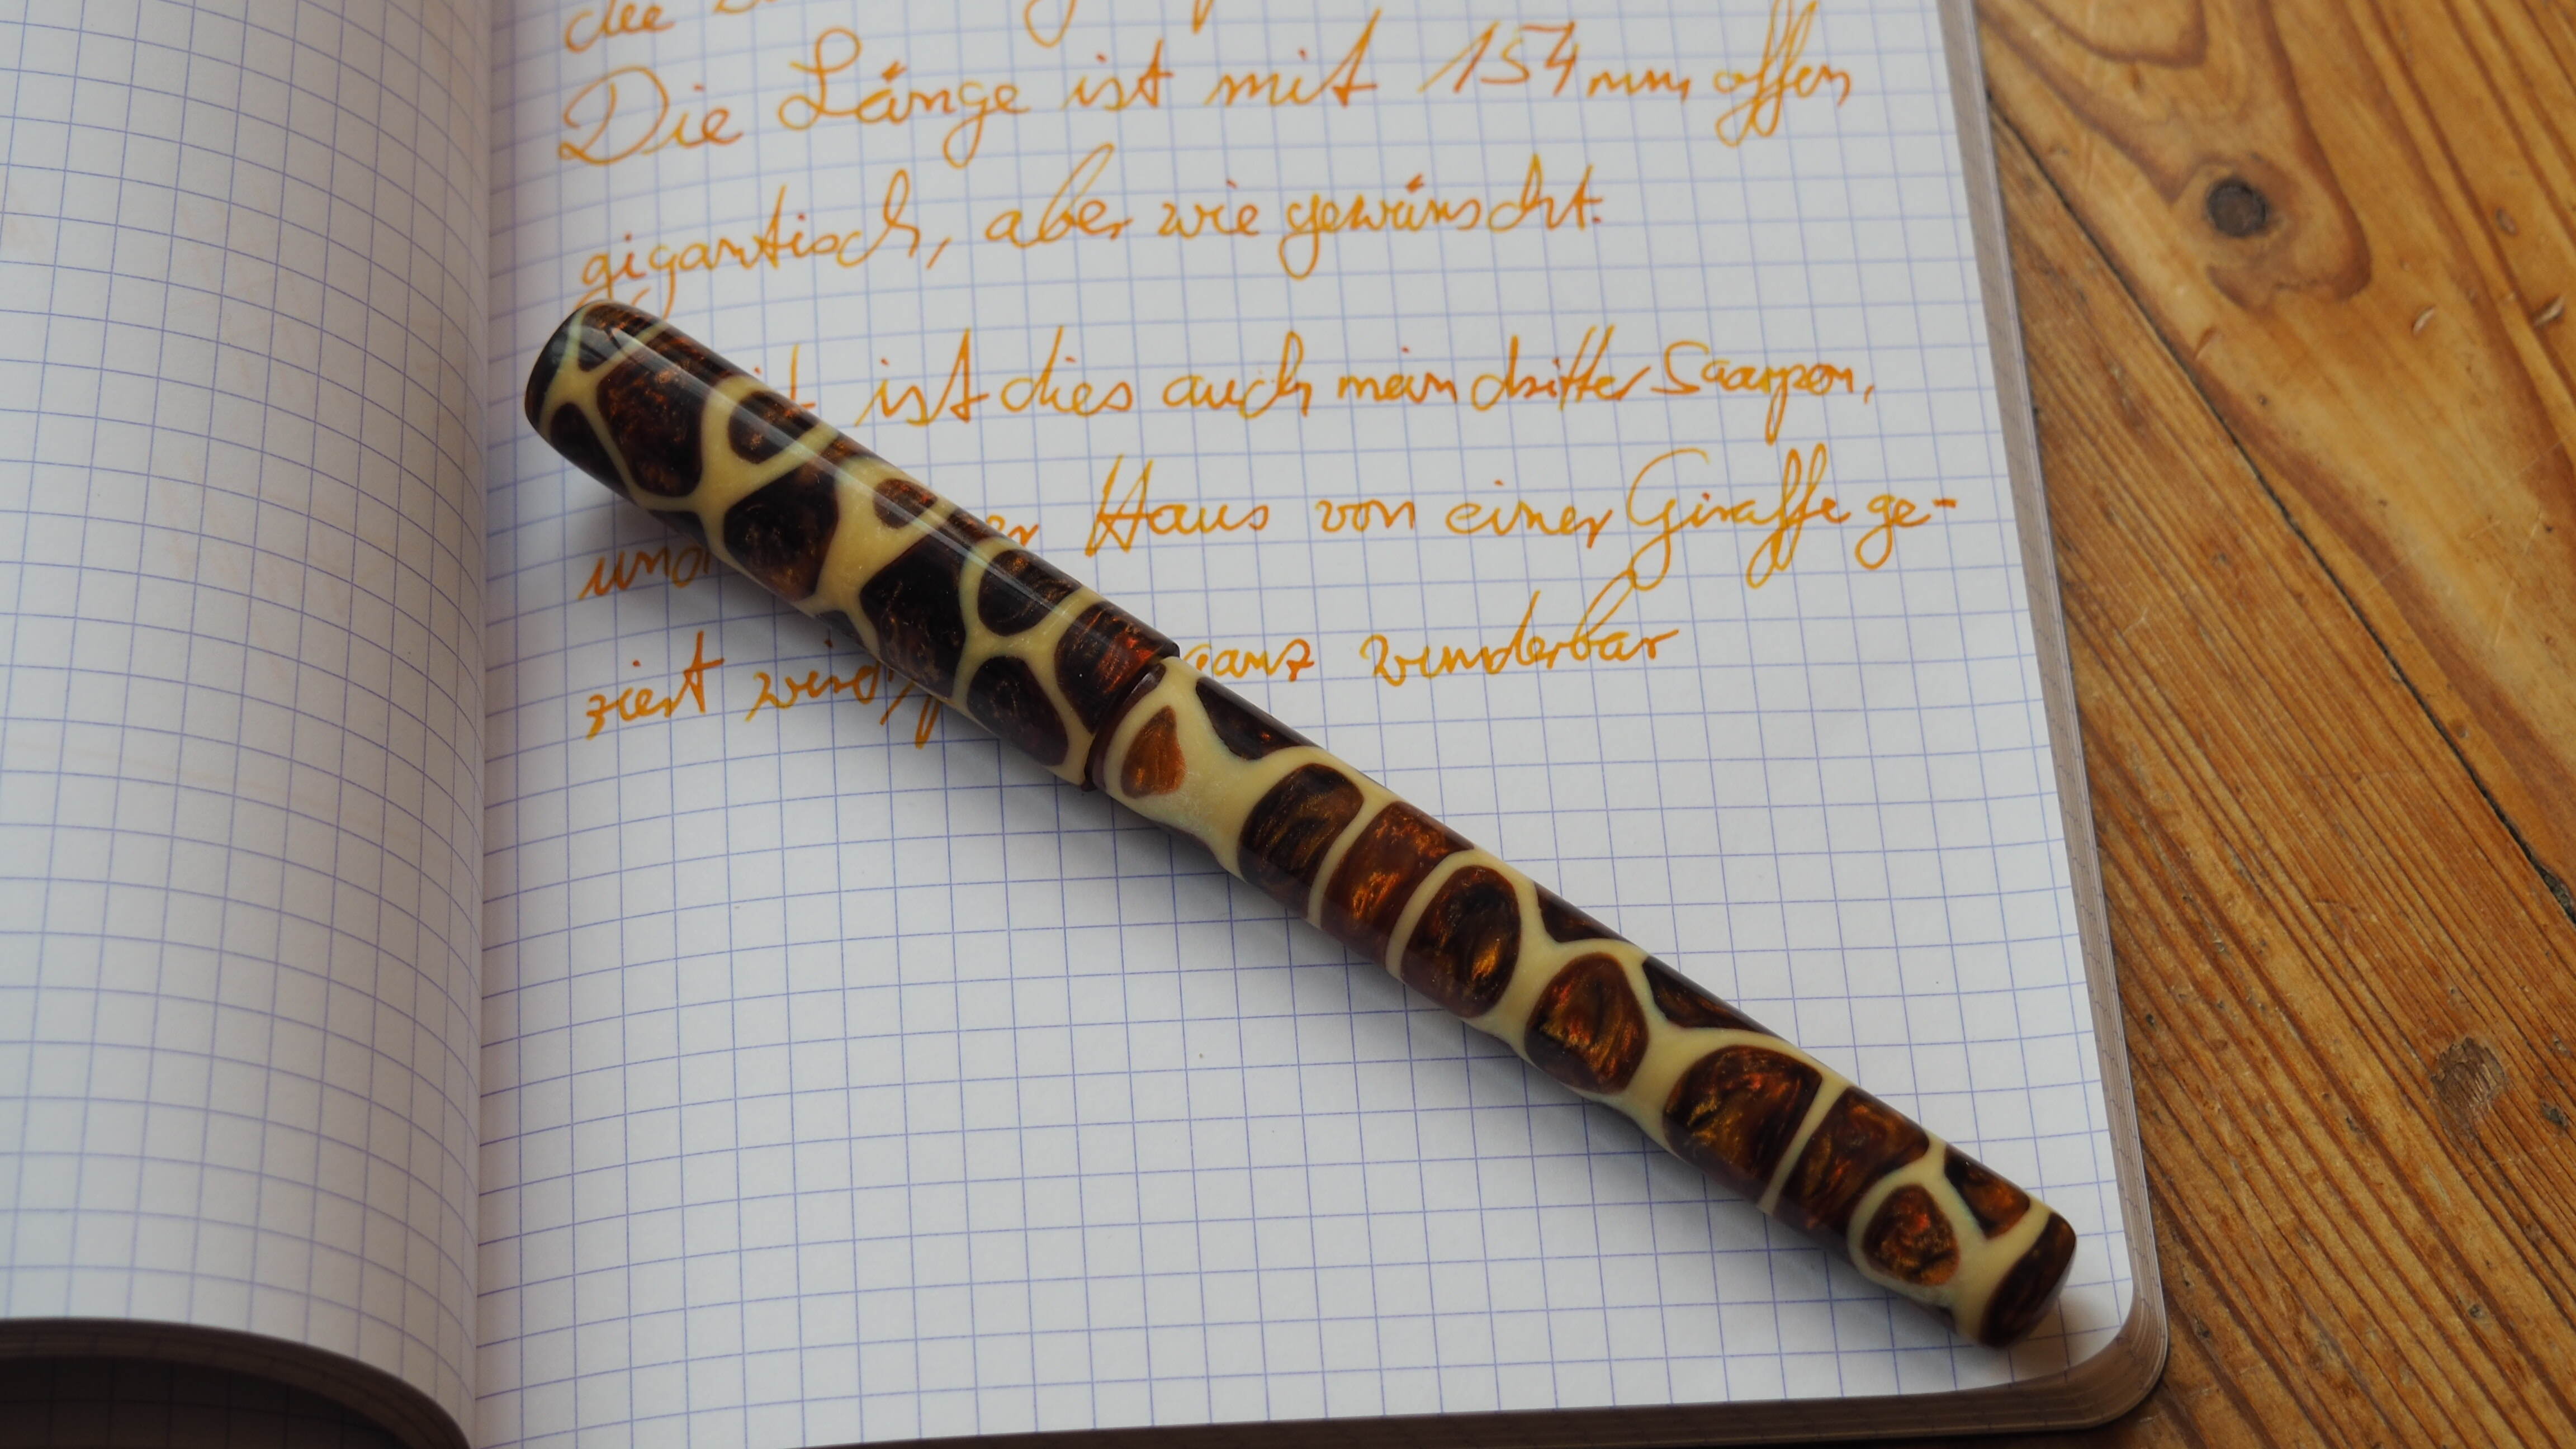 die
Die Länge ist mit 154 mm offen
gigantisch, aber wie gewünscht.
ist dies auch mein dritter Saarpen,
Haus von einer Giraffe ge-
ziert wird, ganz wunderbar